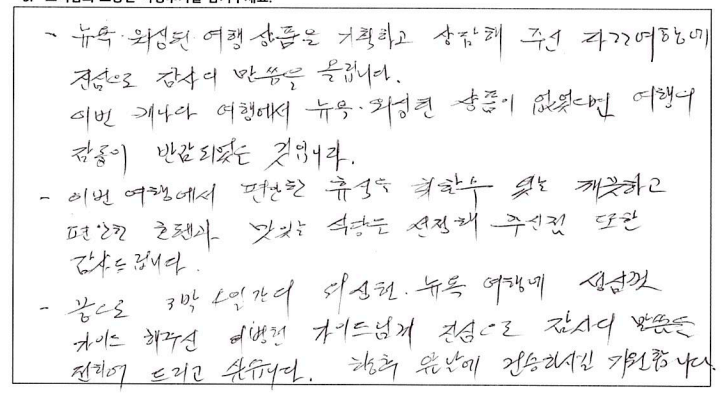 - 뉴욕·워싱턴 여행 상품을 기획하고 상담해 주신 여행에
진심으로 감사의 말씀을 올립니다.
이번 캐나다 여행에서 뉴욕·워싱턴 상품이 없었다면 여행의
감동이 반감되었을 것입니다.
- 이번 여행에서 편안한 휴식을 취할수 있는 깨끗하고
편안한 호텔과 맛있는 식당을 선정해 주신점 또한
감사드립니다.
- 끝으로 3박 4일간의 워싱턴·뉴욕 여행에 성심껏
가이드 해주신 가이드님께 진심으로 감사의 말씀을
전하여 드리고 싶습니다. 향후 앞날에 건승하시길 기원합니다.